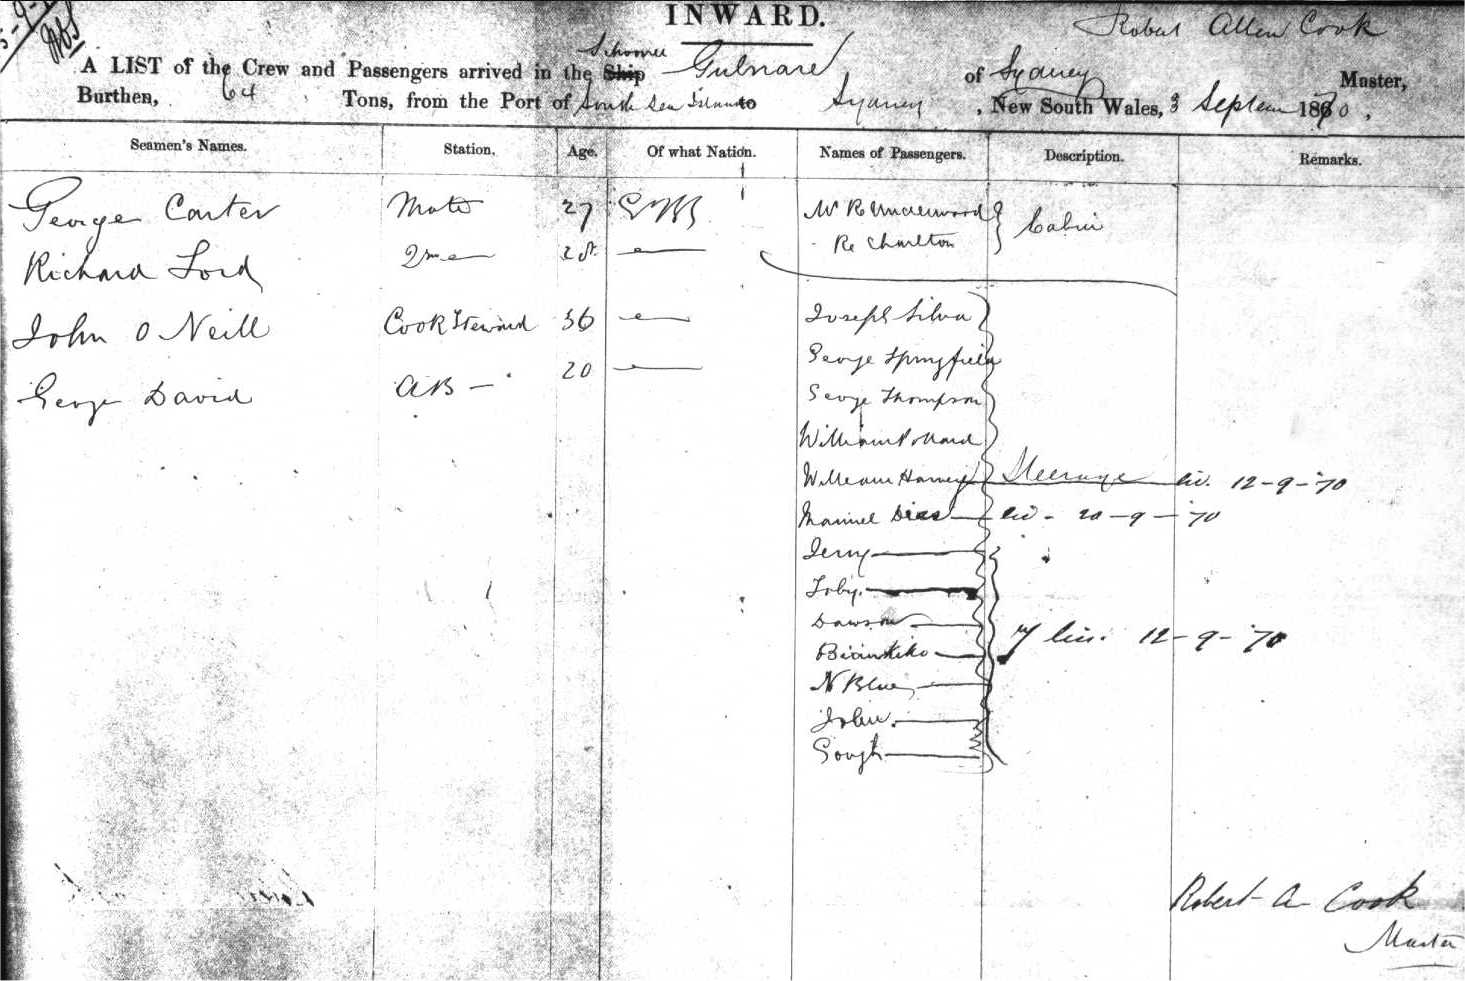 INWARD.
Robert Allen Cook
Schooner
A LIST of the Crew and Passengers arrived in the Ship Gulnare of Sydney Master,
Burthen, 64 Tons, from the Port of South Sea Islands to Sydney , New South Wales, 3 Septem 1870 ,
Seamen's Names. Station. Age. Of what Nation. Names of Passengers. Description. Remarks.
George Carter Mate 27 Mr R Underwood Cabin
Richard Lord 2 me 28 Re Charlton
John O Neill Cook Steward 36 Joseph Silva
George Springfield
George David AB 20 George Thompson
William Pollard
William Harvey Steerage 12-9-70
Manuel Dias 20-9-70
Jerry
Toby.
Dawson
12-9-70
N Blue
John.
Gough
Robert A Cook
Master